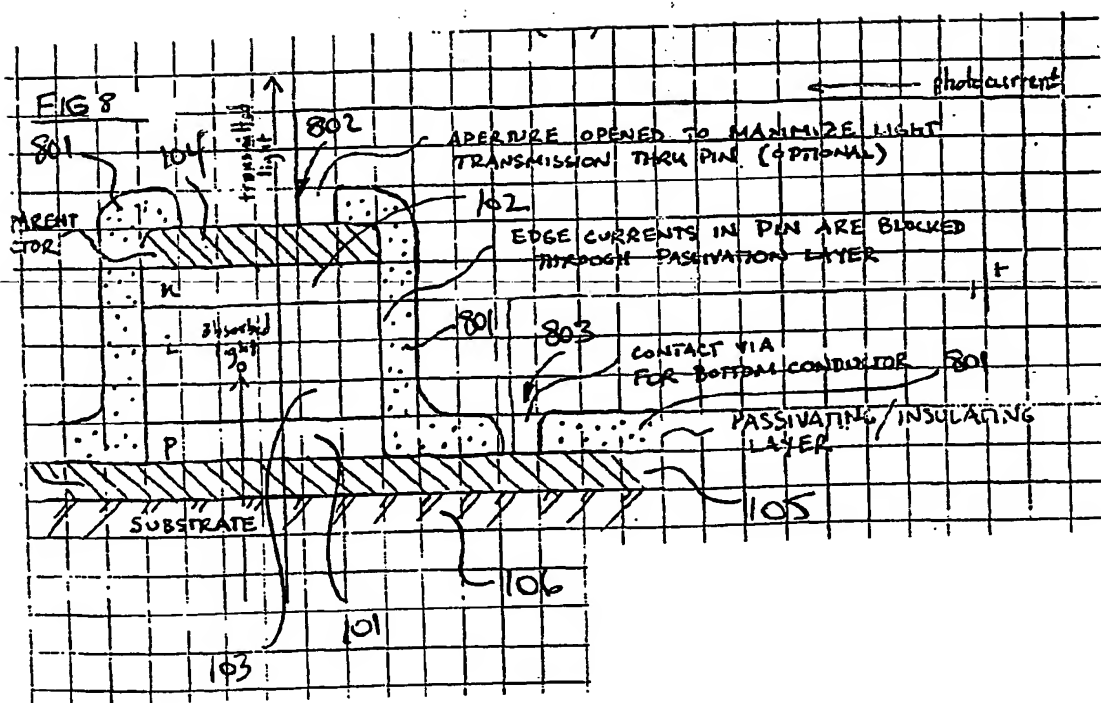 photocurrent
FIG 8
801
104
transmitted
light
802
APERTURE OPENED TO MAXIMIZE LIGHT
TRANSMISSION THRU PIN (OPTIONAL)
PARENT
CTOR
102
EDGE CURRENTS IN PIN ARE BLOCKED
THROUGH PASSIVATION LAYER
n
i
absorbed
801
803
CONTACT VIA
FOR BOTTOM CONDUCTOR
801
PASSIVATING/INSULATING
LAYER
P
105
SUBSTRATE
106
101
103